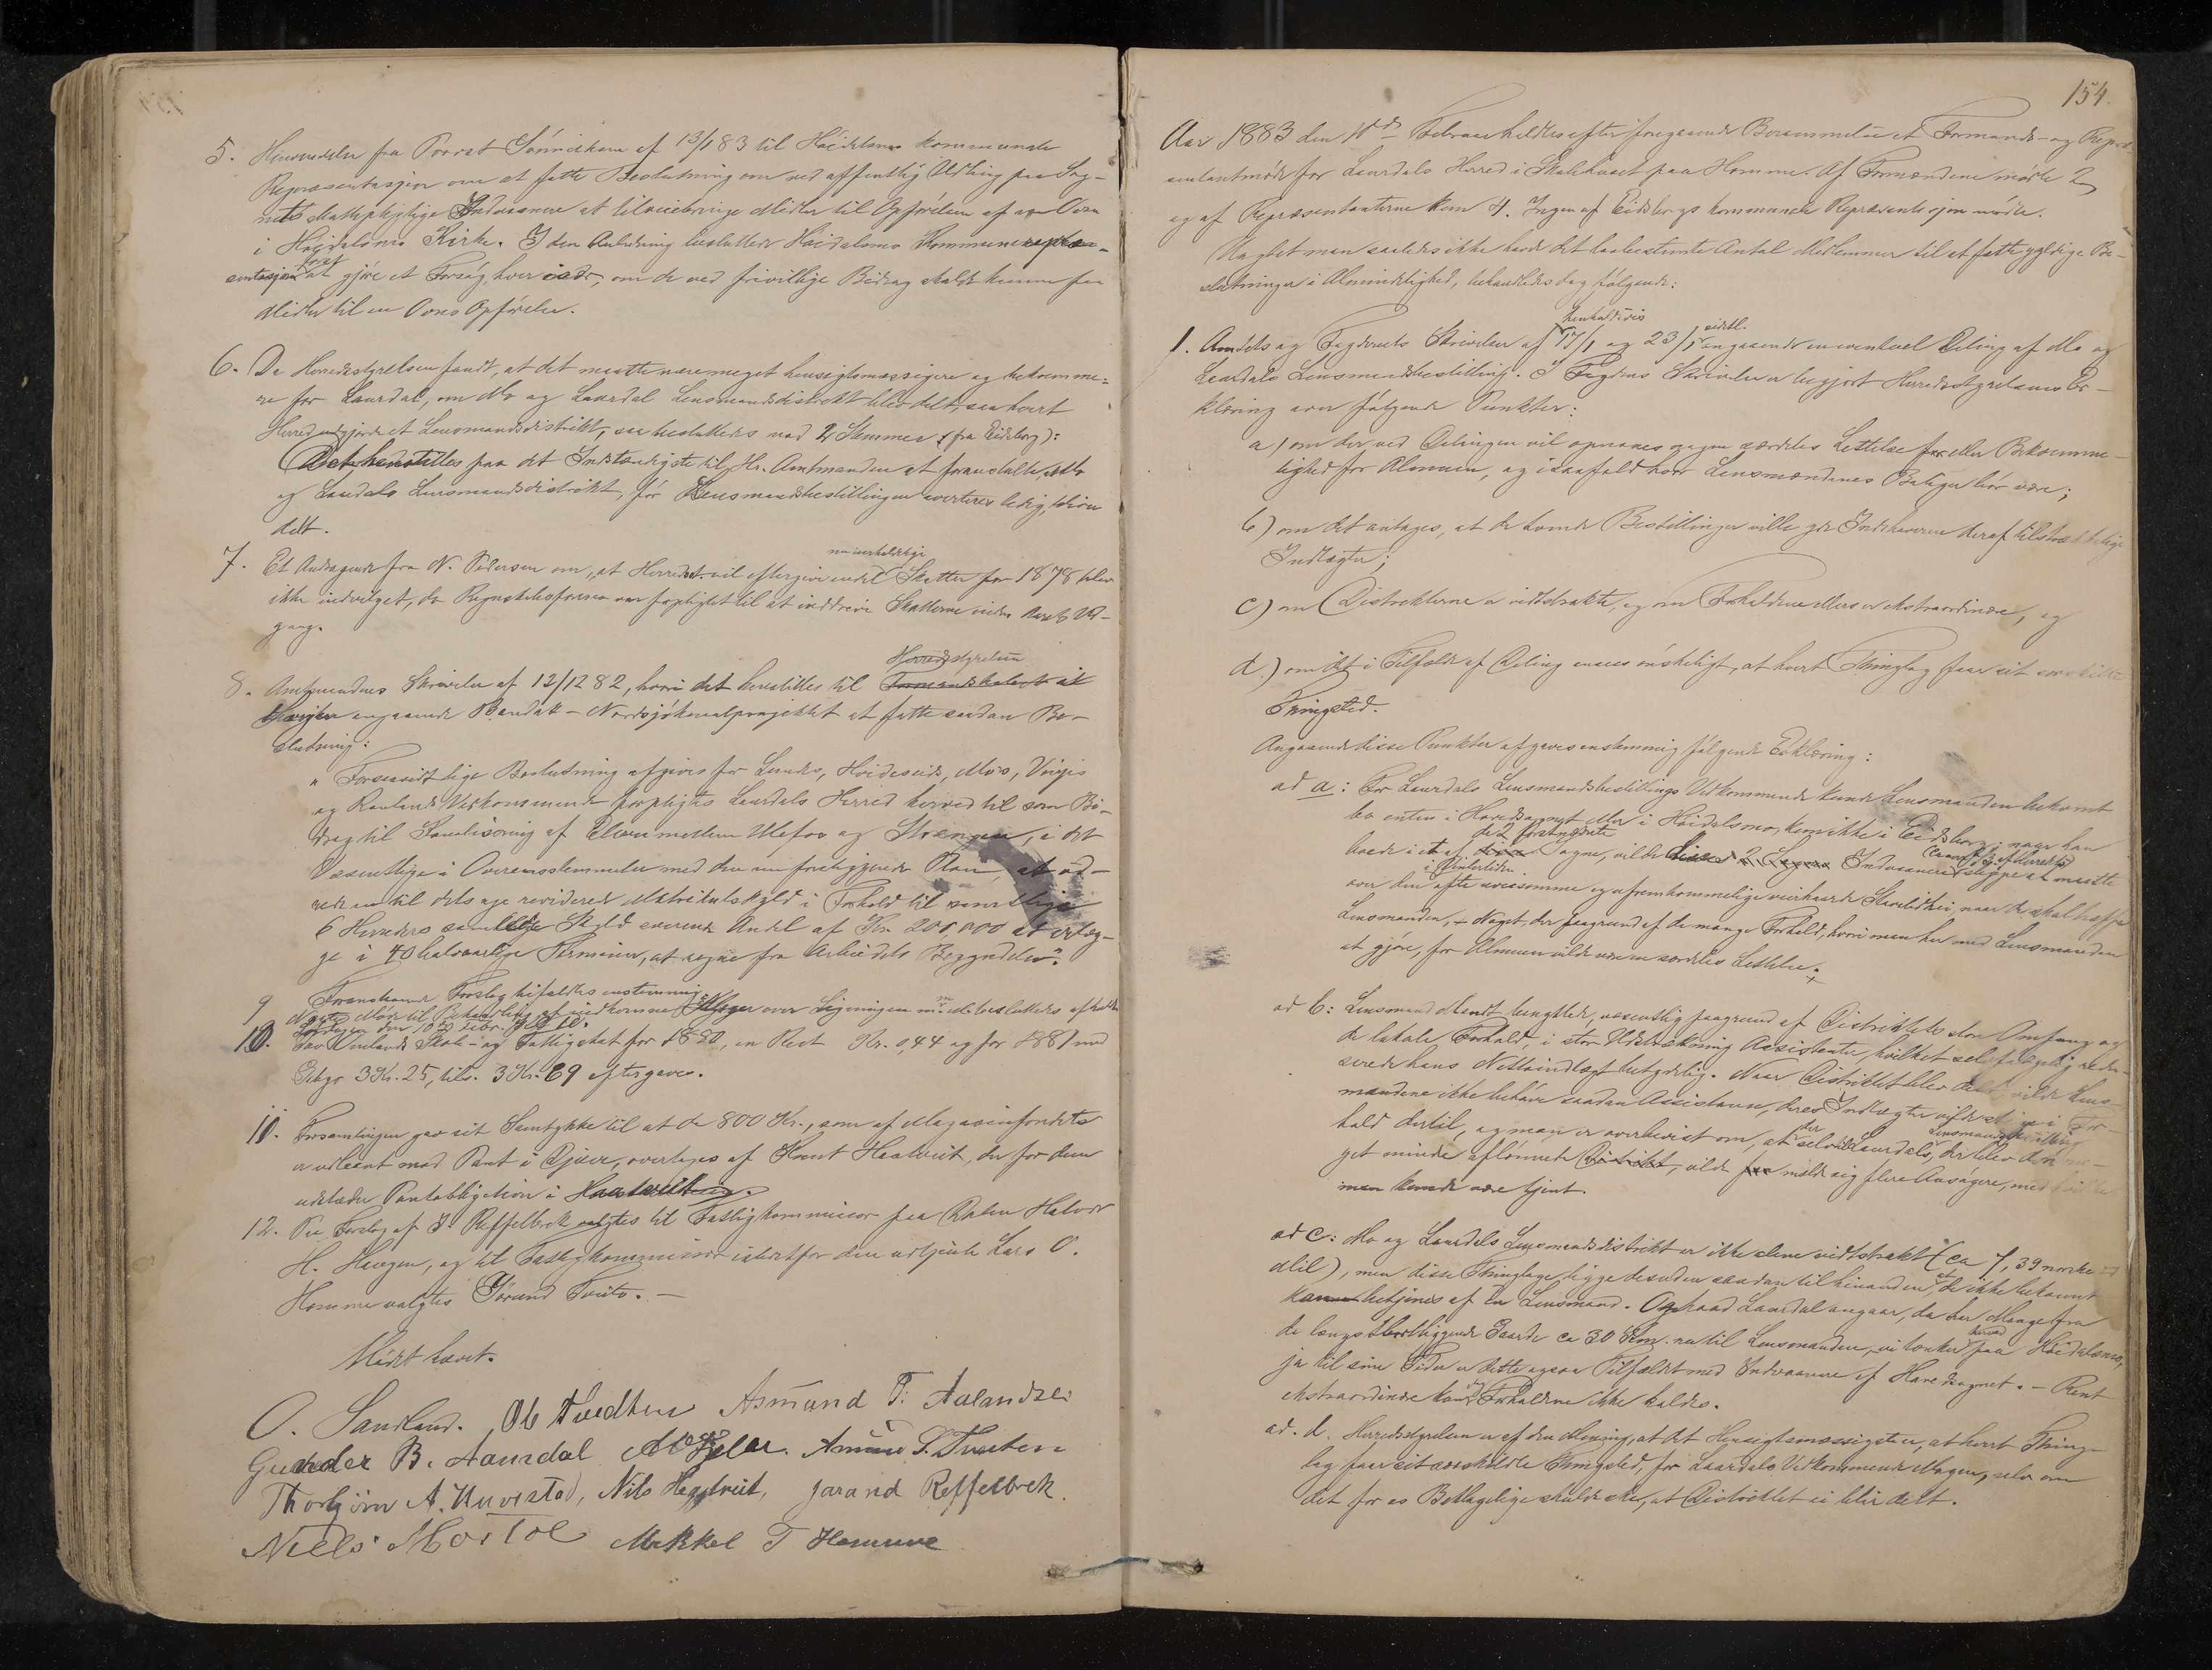 5. Henvendelse fra Provst Sönnichsen af 13/1 83 til Höidalsmo kommunale
Repræsentasjon om at fatte Beslutning om ved offentlig Udling paa Sog-
nets skattepligtige Indvaanere at tilveiebringe Midler til Opförelse af en Ovn
i Höidalsmo Kirke. I den Anledning besluttede Höidalsmo Kommunerepræ-
sentasjon först at gjöre et Forsög, hver især, om de ved frivillige Bidrag skulde kunne faa
Midler til en Ovns Opförelse.
6. Da Herredsstyrelsen fandt, at det maatte være meget hensigtsmæssigere og bekvemme-
re for Laurdal, om Mo og Laurdal Lensmandsdistrikt blev delt, saa hvert
Herred udgjorde et Lensmandsdistrikt, saa besluttedes mod 2 Stemmer (fra Eidsborg):
Det henstilles paa det Indstændigste til Hr. Amtmanden at foranstalte, Mo
og Laurdals Lensmandsdistrikt, för Lensmandsbestillingen averteres ledig, bliver
delt.
7. Et Andragende fra N. Pedersen om, at Herredet vil eftergive endel uerholdelige Skatter for 1878 blev
ikke indvilget, da Regnskabsföreren var forpligtet til at inddrive Skatterne inden Aarets Ud-
gang.
8. Amtmandens Skrivelse af 12/12 82, hvori det henstilles til Herredsstyrelsen Formandskabet at
angaaende Bandak-Nordsjökanalprojektet at fatte saadan Be-
slutning:
" Forsaavidt lige Beslutning afgives for Lunde, Hvideseids, Mos, Vinjes
og Raulands Vedkommende forpligtes Laurdals Herred herved til som Bi-
drag til Kanalisering af Elven mellem Ulefos og Strengen, i det
Væsentlige i Overensstemmelse med den nu foreliggende Plan, at ud-
rede en til dets nye reviderede Matrikulskyld i Forhold til samtlige
6 Herreders samlede Skyld svarende Andel af Kr. 200,000 at erlæg-
ge i 40 halvaarlige Terminer, at regne fra Arbeidets Begyndelse".
Foranstaaende Forslag bifaldtes enstemmig.
9 Næste Möde til Behandling af indkomne Klager over Ligningen m. m. besluttedes afholdt
Lördagen den 10de Febr. Kl. 10.
10. Skole- og Fattigskat for 1880, en Rest Kr. 0,44 og for 1881 med
Gebyr 3 Kr. 25, tils. 3 Kr. 69 eftergaves.
11. Forsamlingen gav sit Samtykke til at de 800 Kr., som af Magasinfondets
er udlaant mod Pant i Djuve, overtages af Knut Haatveit, der for dem
udsteder Pantobligation i Haatveit.
12. Paa Forslag af J. Reffelbrek valgtes til Fattigkommissær paa Dalen Halvor
H. Haugen, og til Fattigkommissær istedetfor den udtjente Lars O.
Homme valgtes Jörund Tveito. —
Mödet hævet.
O. Sandland. Ole Tvedten Asmund T: Aalandslei
Gunder B. Aamdal
Thorbjörn A. Kurestad, Nils Hegtveit, Jarand Reffelbrek.
Niels Mostöl Mikkel T Homme
154.
Aar 1883 den 10de Februar holdtes efter foregaaende Berammelse et Formands- og Repræ-
sentantmöde for Laurdals Herred i Skolehuset paa Homme. Af Formændene mödte 2
og af Repræsentanterne kun 4. Ingen af Eidsborgs kommunale Repræsentasjon mödte.
Uagtet man saaledes ikke havde det lovbestemte Antal Medlemmer til at fatte gyldige Be-
slutninger i Almindelighed, behandledes dog fölgende:
1. Amtets og Fogderiets Skrivelser af henholdsvis 17/1 og 23/1 sidstl. angaaende en eventuel Deling af Mo og
Laurdals Lensmandsbestilling. I Fogdens Skrivelse er begjært Herredsstyrelsens Er-
klæring over fölgende Punkter:
a) om der ved Delingen vil opnaaes nogen særdeles Lettelse for eller Bekvemme-
lighed for Almuen, og isaafald hvor Lensmændenes Boliger bör være;
b) om det antages, at de tvende Bestillinger ville give Indehaverne deraf tilstrækkelige
Indtægter;
c) om Distrikterne er vidtstrakte, og om Forholdene ellers er ekstraordinære, og
d.) om det i Tilfælde af Deling ansees önskeligt, at hvert Thinglag faar sit særskilte
Thingsted.
Angaaende disse Punkter afgaves enstemmig fölgende Erklæring:
ad a: For Laurdals Lensmandsbestillings Vedkommende kunde Lensmanden bekvemt
bo enten i Hovedsognet eller i Höidalsmo, kun ikke i Eidsborg; naar han
boede i et af de 2 förstnævnte Sogne, vilde disse Indvaanere slippe at maatte
i Vintertiden over den ofte uveisomme og ufremkommelige veirhaarde naar de skal træffe
Lensmanden, — Noget, der paagrund af de mange Forhold, hvori man har med Lensmanden
at gjöre, for Almuen vilde være en særdeles Lettelse.
ad b: Lensmand Mandt benyttede, væsentlig paagrund af Distriktets store Omfang og
de lokale Forhold, i stor Udstrækning Assistenter, hvilket selvfölgelig redu-
serede hans Nettoindtægt betydelig. Naar Distriktet blev delt, vilde Lens-
mændene ikke behöve saadan Assistance, deres Indtægter vilde stige i For-
hold dertil, og man er overbevist om, at der selv til Laurdals Lensmandsbestilling, der blev den no-
get mindre aflönnede Distrikt, vilde melde sig flere Ansögere, med hvilke
man kunde være tjent.
ad c: Mo og Laurdals Lensmandsdistrikt er ikke alene vidtstrakt (ca 7,39 norske □
Mil), men disse Thinglage ligge desuden saadan til hinanden, at de ikke bekvemt
kan betjenes af én Lensmand. Ophvad Laurdal angaar, da har Mange fra
de længst bortliggende Gaarde ca 30 Km. nu til Lensmanden, vi tænker herved paa Höidalsmo,
ja til sine Tider er dette ogsaa Tilfældet med Indvaanere af Hovedsognet. — Rent
ekstraordinære kan dog Forholdene ikke kaldes.
ad. d. Herredsstyrelsen er af den Mening, at det Hensigtsmæssigste er, at hvert Thing-
lag faar sit særskilte Thingsted, for Laurdals Vedkommende Mogen, selv om
det for os Beklagelige skulde ske, at Distriktet ei blir delt.